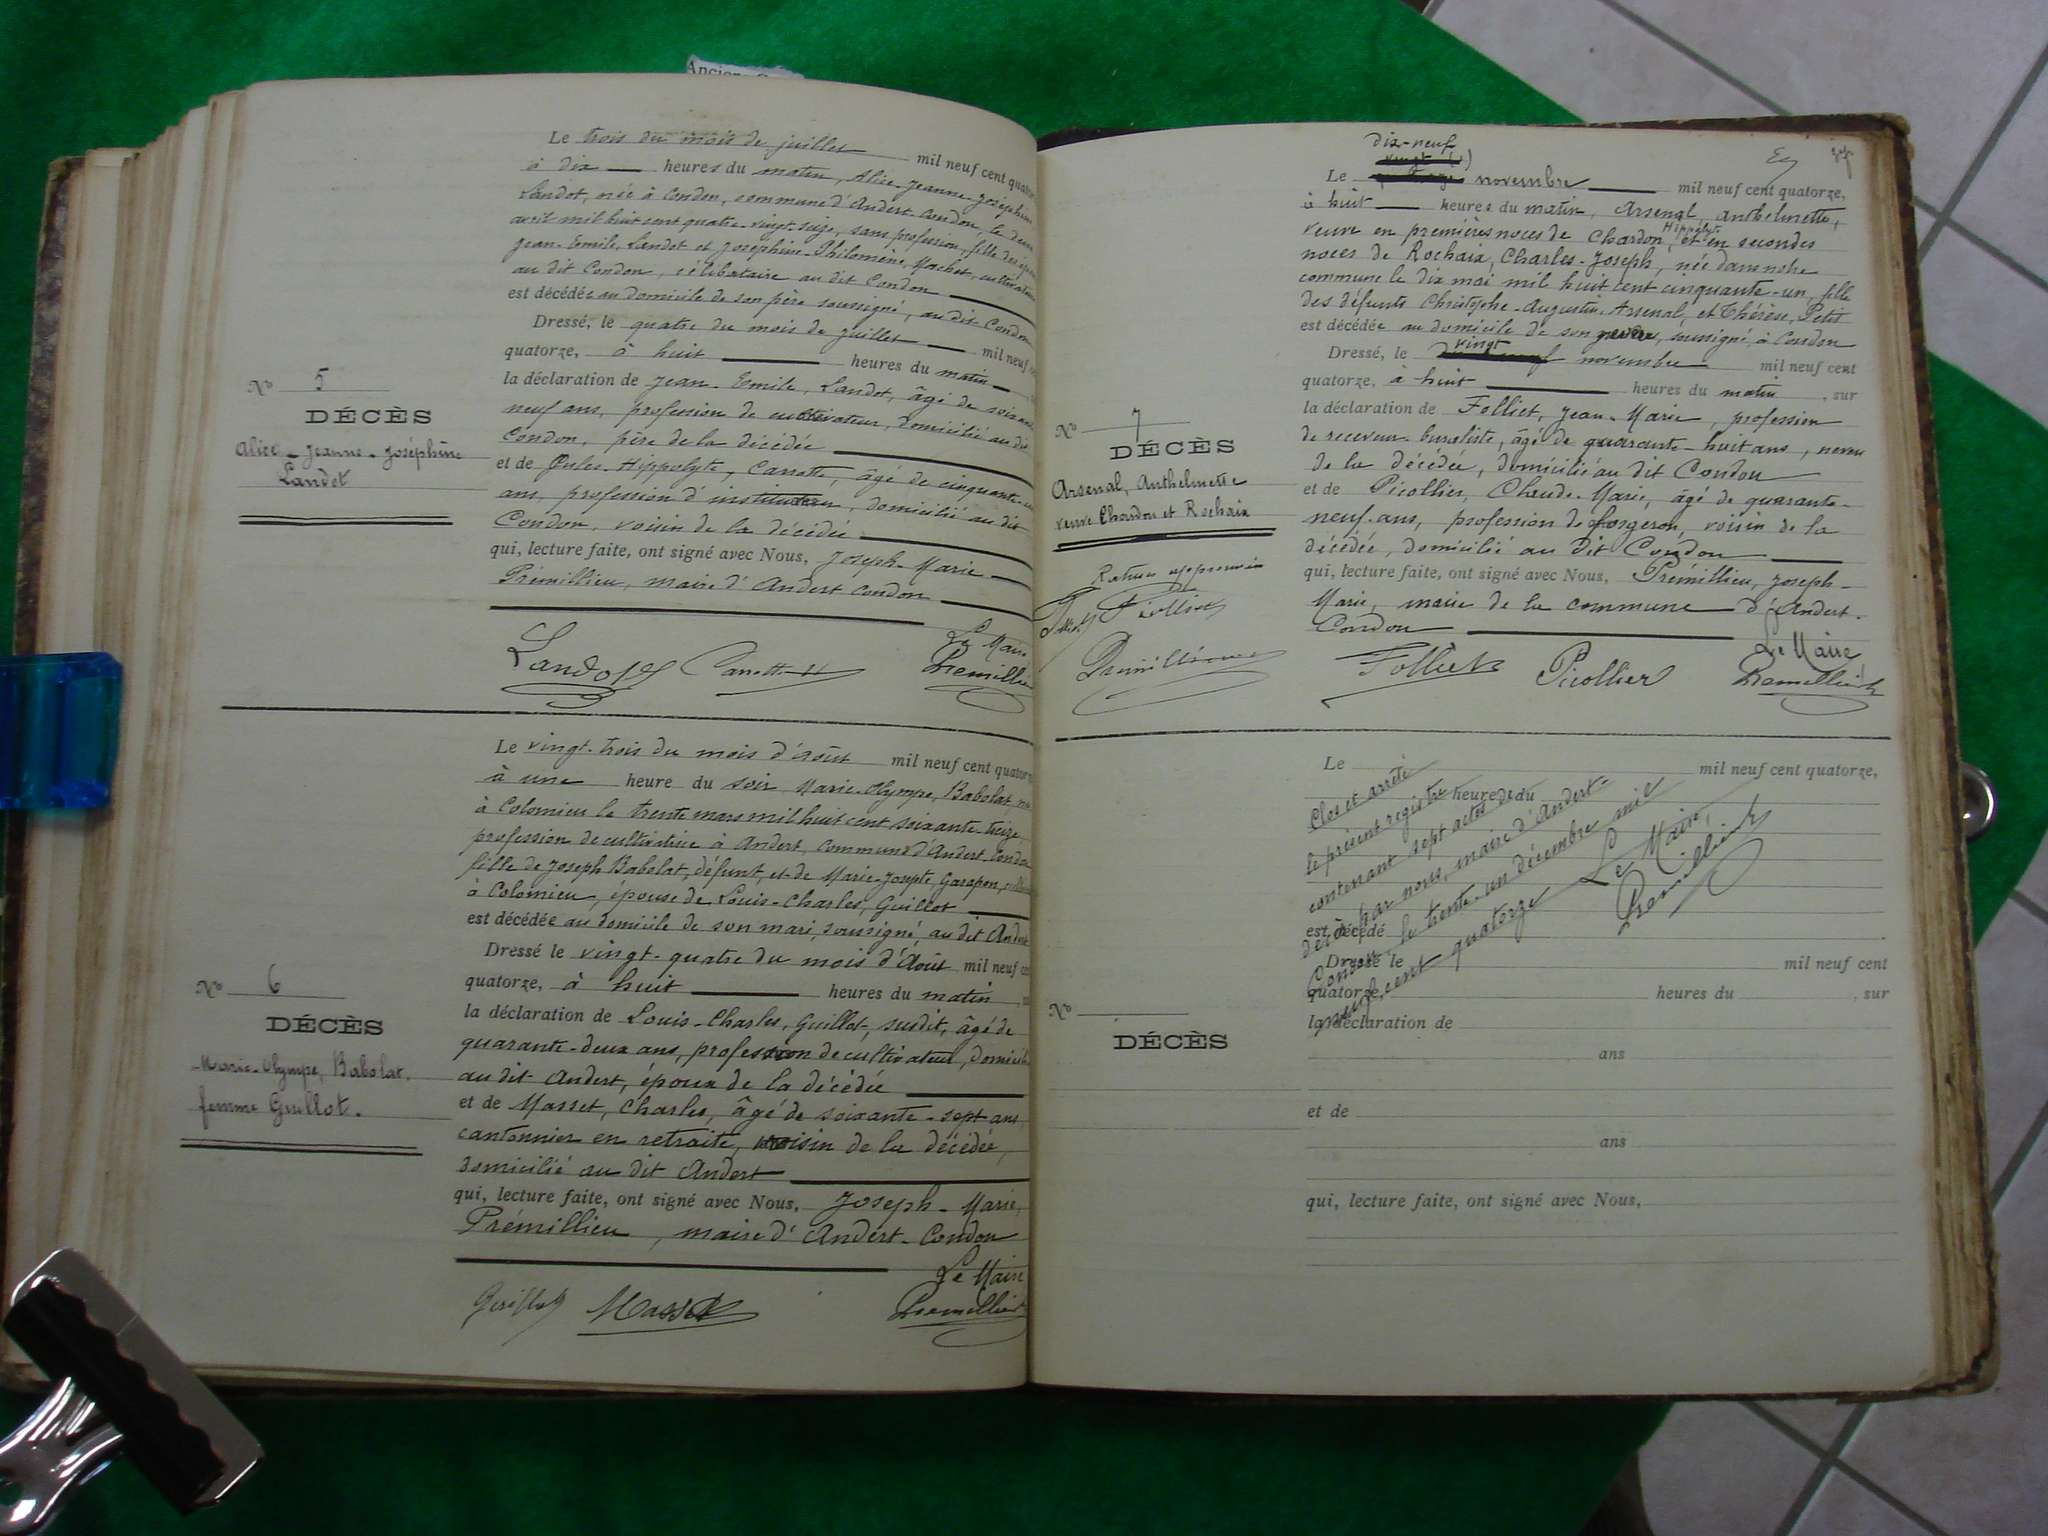 Le trois du mois de juillet mil neuf cent quator
à dix heures du matin, Alice-Jeanne-Joséphine
Landot, née à Condon, commune d'Andert-Condon, le deux
avril mil huit cent quatre-vingt-seize, sans profession, fille des
Jean-Emile, Landot et Joséphine-Philomène, Mochet, cultivateurs
au dit Condon, célibataire au dit Condon
est décédée au domicile de son père soussigné, au dit Condon
Dressé, le quatre du mois de juillet mil neuf
quatorze, à huit heures du matin
la déclaration de Jean-Emile, Landot, âgé de
neuf ans, profession de cultivateur, domicilié au dit
Condon, père de la décédée
et de Hippolyte, Carrotte, âgé de cinquante
ans, profession d'instituteur, domicilié au dit
Condon, voisin de la décédée
qui, lecture faite, ont signé avec Nous, Joseph-Marie
Prémillieu, maire d'Andert-Condon
Le Maire
Landot Prémillieu
No 5
DÉCÈS
Alice-Jeanne-Joséphine
Landot
Le vingt-trois du mois d'août mil neuf cent quator
à une heure du soir Marie-Olympe, Babolat, née
à Colomieu le trente mars mil huit cent soixante-treize
profession de cultivatrice à Andert, commune d'Andert-Condon
fille de Joseph Babolat, défunt, et de Marie-Josepte, Garapon,
à Colomieu, épouse de Louis-Charles, Guillot
est décédée au domicile de son mari, soussigné, au dit Andert
Dressé le vingt-quatre du mois d'Août mil neuf ce
quatorze, à huit heures du matin
la déclaration de Louis-Charles, Guillot, susdit, âgé de
quarante-deux ans, profession de cultivateur, domicilié
au dit Andert, époux de la décédée
et de Masset, Charles, âgé de soixante-sept ans
cantonnier en retraite, voisin de la décédée,
domicilié au dit Andert
qui, lecture faite, ont signé avec Nous, Joseph-Marie,
Prémillieu, maire d'Andert-Condon
Le Maire
Guillot Masset Prémillieu
No 6
DÉCÈS
Marie-Olympe, Babolat,
femme Guillot.
dix-neuf
Le novembre mil neuf cent quatorze,
à huit heures du matin, Arsenal, Anthelmette,
veuve en premières noces de Chardon, Hippolyte et en secondes
noces de Rochaix, Charles-Joseph, née dans notre
commune le dix mai mil huit cent cinquante-un, fille
des défunts Christophe-Augustin, Arsenal, et Thérèse, Petit
est décédée au domicile de son neveu, soussigné, à Condon
Dressé, le vingt novembre mil neuf cent
quatorze, à huit heures du matin, sur
la déclaration de Folliet, Jean-Marie, profession
de receveur-buraliste, âgé de quarante-huit ans, neveu
de la décédée, domicilié au dit Condon
et de Picollier, Claude-Marie, âgé de quarante-
neuf ans, profession de forgeron, voisin de la
décédée, domicilié au dit Condon
qui, lecture faite, ont signé avec Nous, Prémillieu, Joseph-
Marie, maire de la commune d'Andert-
Condon
Le Maire,
Folliet Picollier Prémillieu
No 7
DÉCÈS
Arsenal, Anthelmette
veuve Chardon et Rochaix
Rature approuvée
Folliet
Prémillieu
Le mil neuf cent quatorze,
heure du
est décédé
Dressé le mil neuf cent
quatorze, heures du , sur
la déclaration de
ans
et de
ans
qui, lecture faite, ont signé avec Nous,
No
DÉCÈS
Clos et arrêté
le présent registre
contenant sept actes de
décès par nous, maire d'Andert-
Condon le trente-un décembre mil
neuf cent quatorze
Le Maire,
Prémillieu